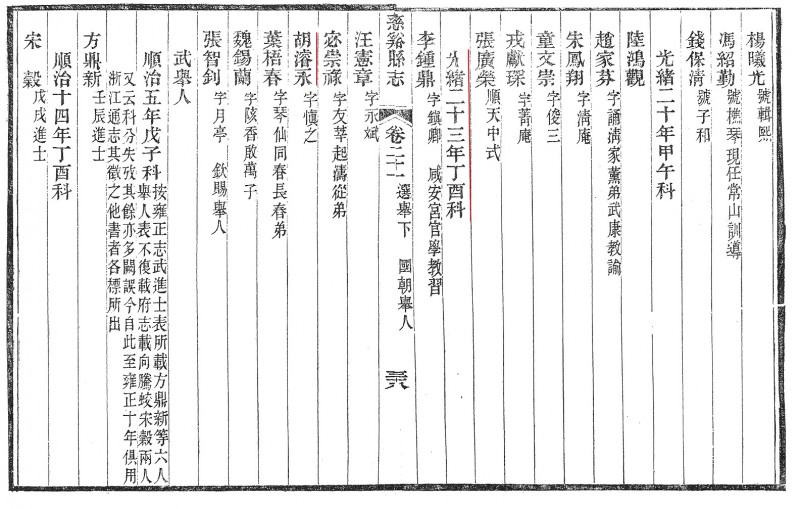 楊曦光號輯熙
馮紹勤號樵琴現任常山訓導
錢保淸號子和
光緒二十年甲午科
陸鴻觀
趙家芬字誦淸家薰弟武康教諭
朱鳳翔字淸庵
童文崇字俊三
戎獻琛字菁庵
張廣榮順天中式
光緒二十三年丁酉科
李鍾鼎字鎭卿 咸安宮官學教習
慈谿縣志 卷二十一 選舉下 國朝舉人
汪憲章字永斌
宓崇祿字友莘起濤從弟
胡濬永字慎之
葉梧春字琴仙同春長春弟
魏錫蘭字陔香啟萬子
張智釗字月亭 欽賜舉人
武舉人
順治五年戊子科按雍正志武進士表所載方鼎新等六人
舉人表不復載府志載向騰蛟宋穀兩人
又云科分失攷其餘亦多闕誤今自此至雍正十年俱用
浙江通志其徵之他書者各標所出
方鼎新壬辰進士
順治十四年丁酉科
宋 穀戊戌進士